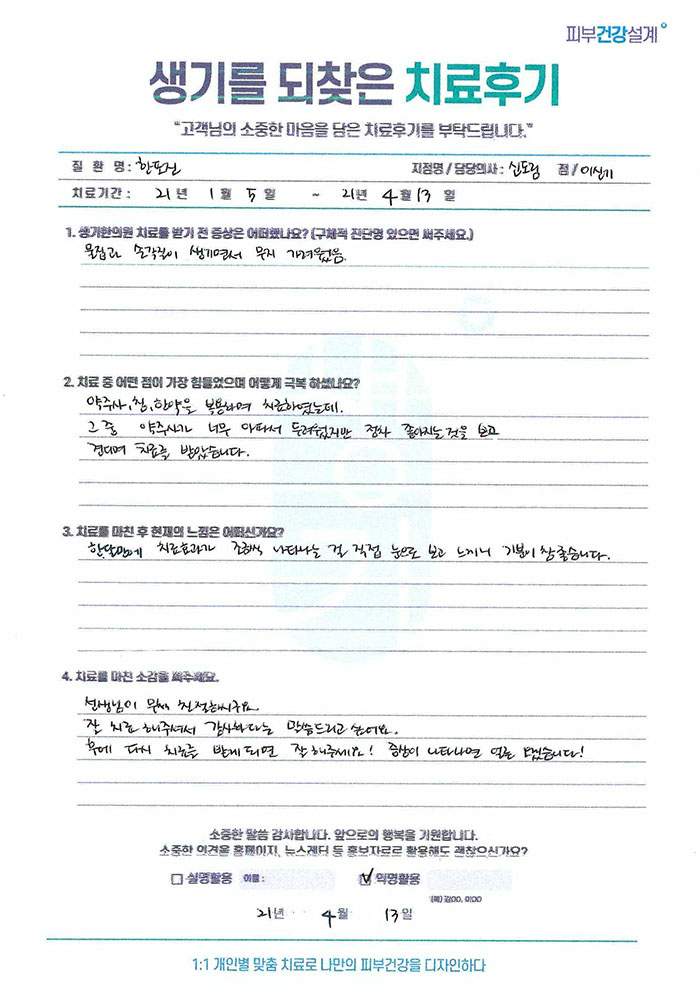 피부건강설계
생기를 되찾은 치료후기
"고객님의 소중한 마음을 담은 치료후기를 부탁드립니다."
질 환 명 : 한포진 지점명 / 담당의사 : 신도림 점 / 이신기
치료기간 : 21년 1월 5일 ~ 21년 4월 13일
1. 생기한의원 치료를 받기 전 증상은 어떠했나요? (구체적 진단명 있으면 써주세요.)
물집과 손각질이 생기면서 무지 가려웠음.
2. 치료 중 어떤 점이 가장 힘들었으며 어떻게 극복 하셨나요?
약주사, 침, 한약을 복용하며 치료하였는데.
그 중 약주사가 너무 아파서 두려웠지만 점차 좋아지는것을 보고
견디며 치료를 받았습니다.
3. 치료를 마친 후 현재의 느낌은 어떠신가요?
한달만에 치료효과가 조금씩 나타나는 걸 직접 눈으로 보고 느끼니 기분이 참 좋습니다.
4. 치료를 마친 소감을 써주세요.
선생님이 무척 친절하시구요
잘 치료해주셔서 감사하다는 말씀드리고 싶어요.
후에 다시 치료를 받게되면 잘 해주세요! 증상이 나타나면 얼른 오겠습니다!
소중한 말씀 감사합니다. 앞으로의 행복을 기원합니다.
소중한 의견을 홈페이지, 뉴스레터 등 홍보자료로 활용해도 괜찮으신가요?
실명활용 이름 : 익명활용
(예) 김00, 이00
21년 4월 13일
1:1 개인별 맞춤 치료로 나만의 피부건강을 디자인하다